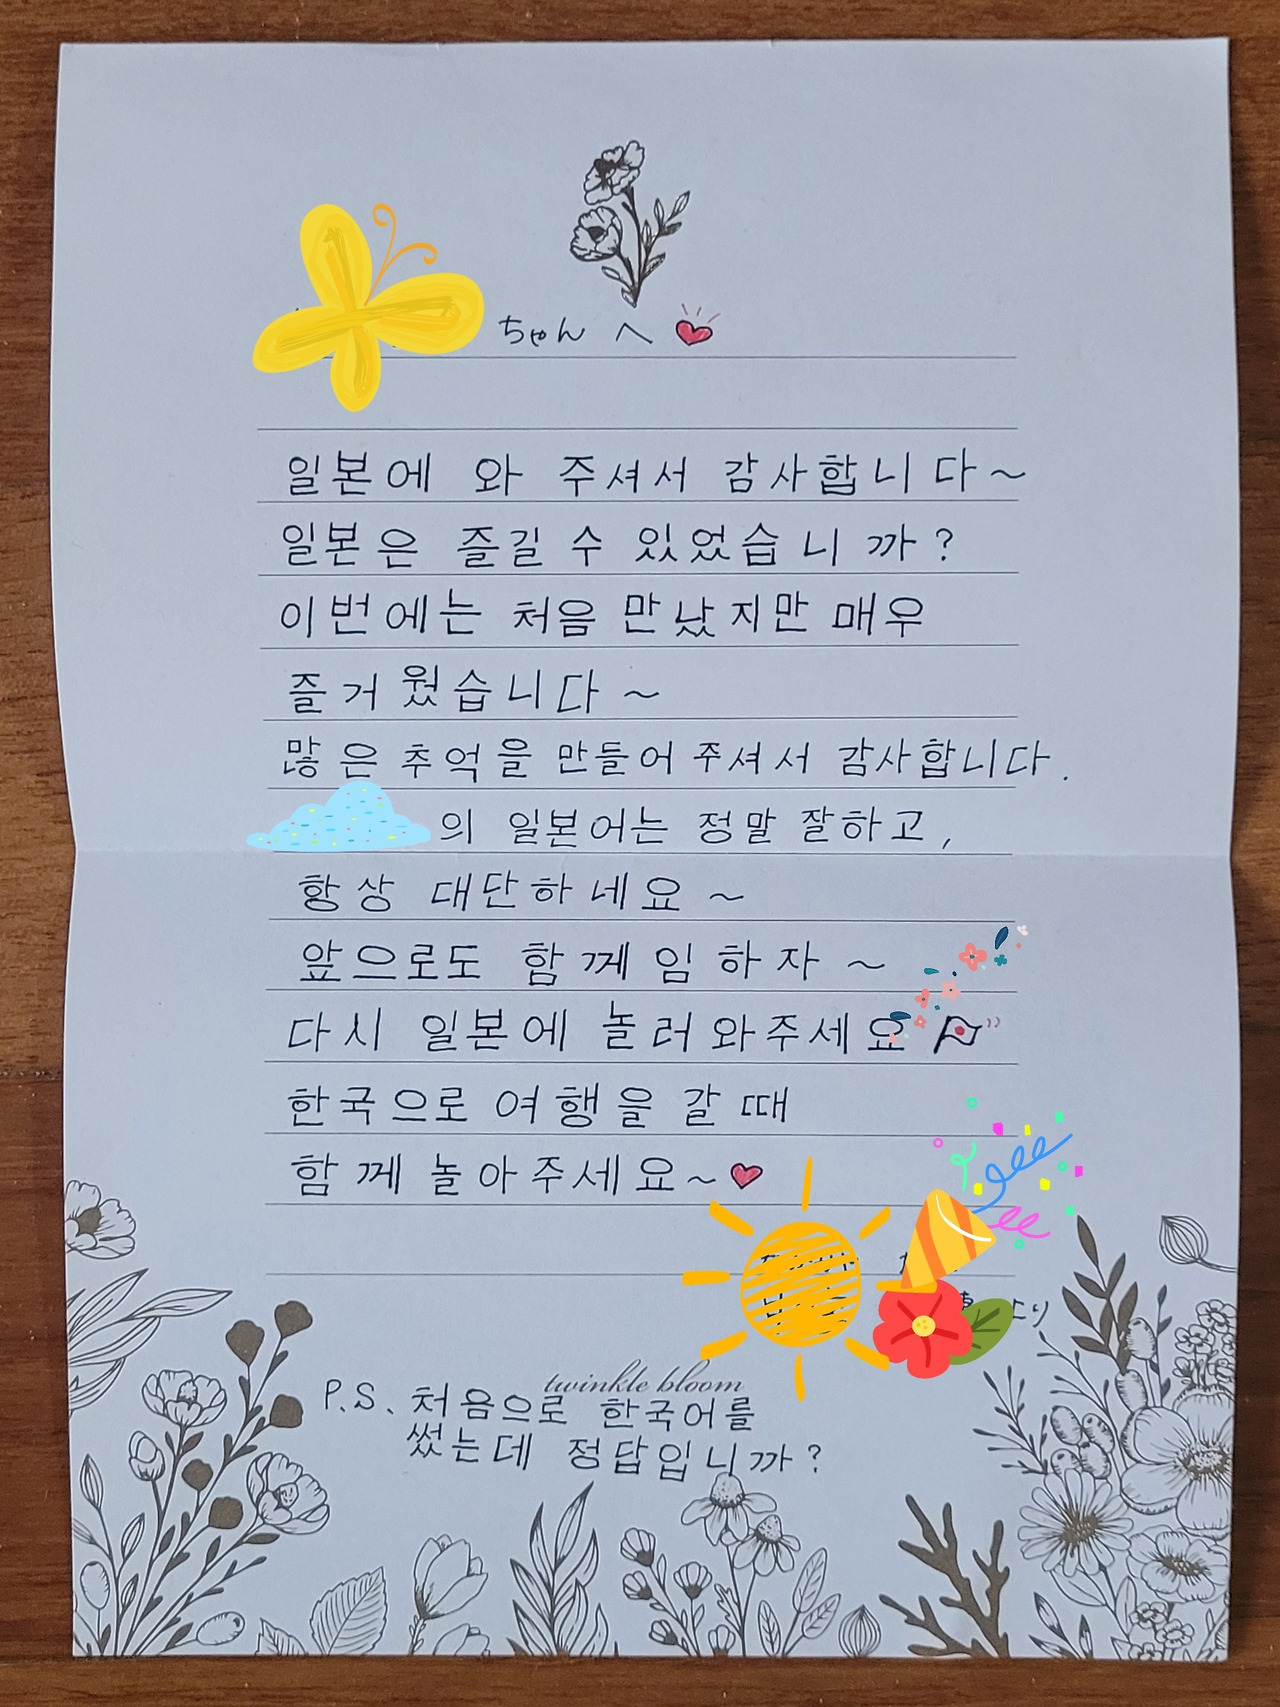 ちゃん へ
일본에 와 주셔서 감사합니다~
일본은 즐길 수 있었습니까?
이번에는 처음 만났지만 매우
즐거웠습니다~
많은 추억을 만들어 주셔서 감사합니다.
의 일본어는 정말 잘하고,
항상 대단하네요~
앞으로도 함께임하자~
다시 일본에 놀러와주세요
한국으로 여행을 갈 때
함께 놀아주세요~
より
twinkle bloom
P.S. 처음으로 한국어를
썼는데 정답입니까?